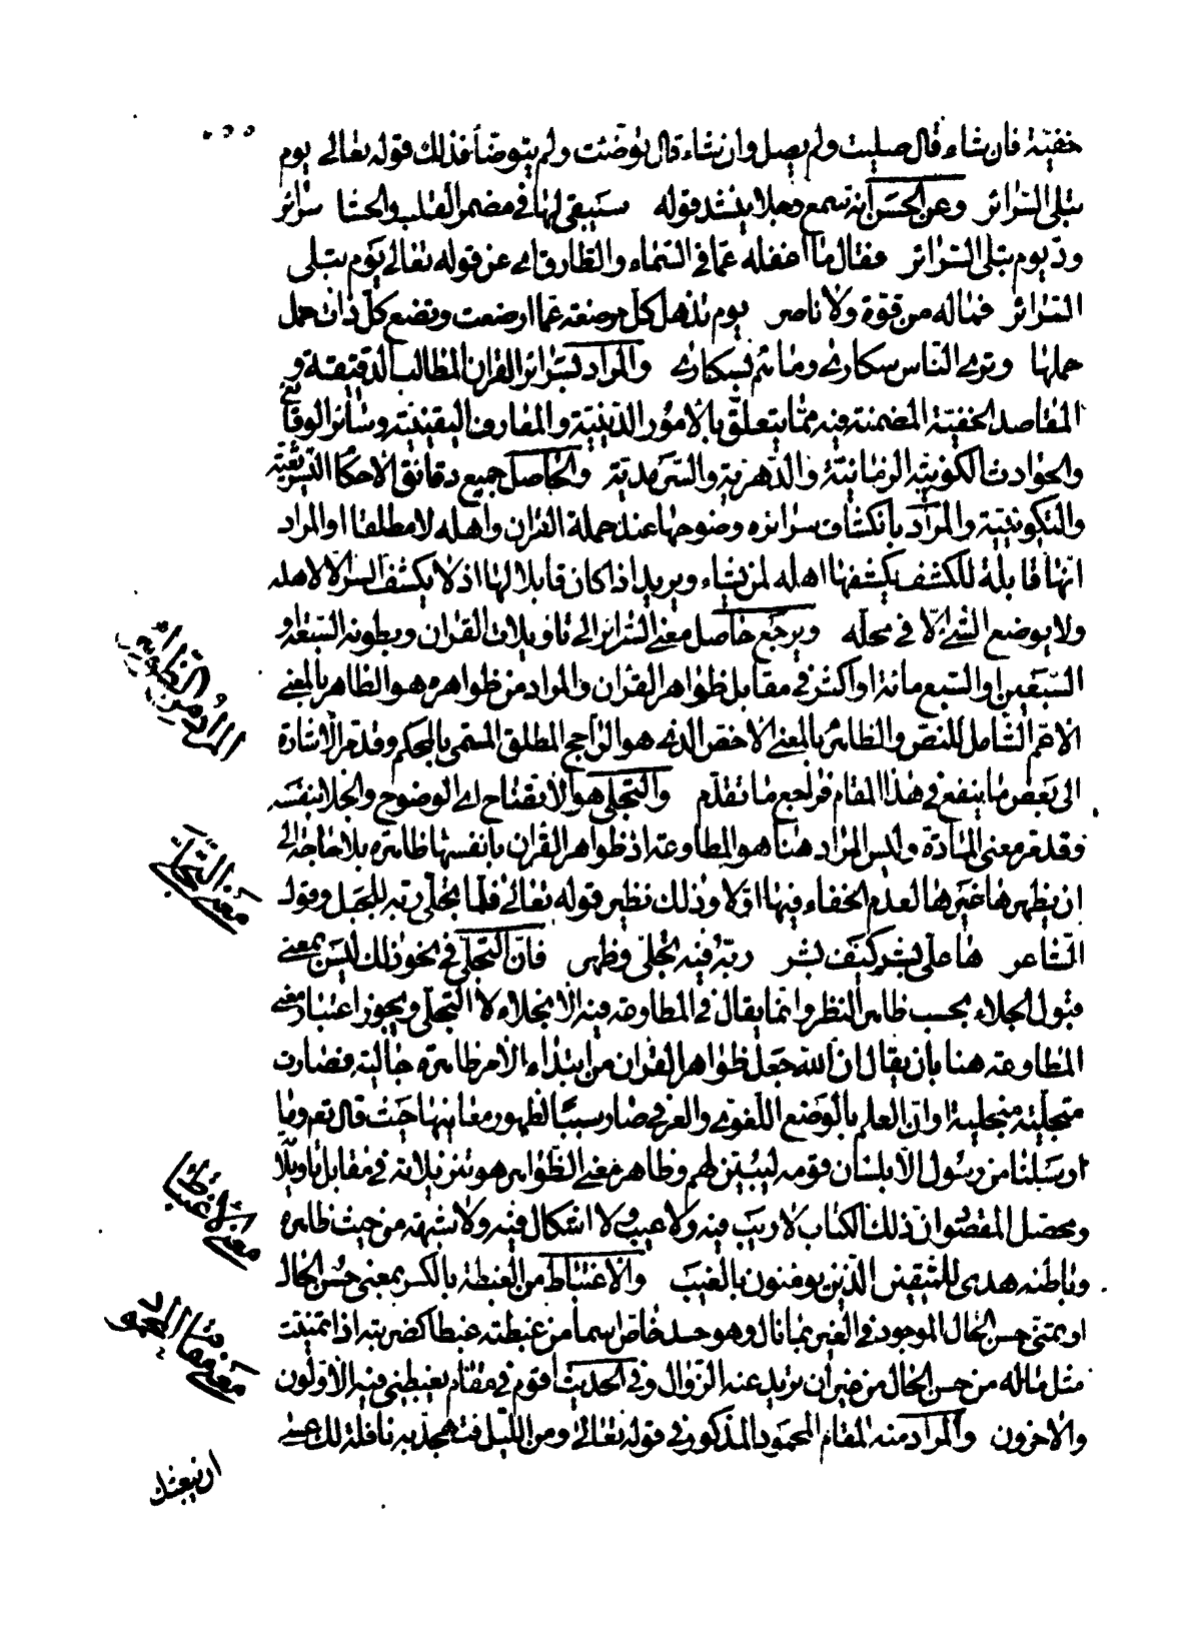 خفيّة فان شاء قال صليت ولم يصل وان شاء قال توضّئت ولم يتوضّأ فذلك قوله تعالى يوم
تبلى السّرائر وعن الحسن انه سمع رجلا ينشد قوله سيبقى لها في مضمر القلب والحشا سرائر
ودّ يوم تبلى السرائر فقال ما اغفله عمّا في السّماء والطّارق اى عن قوله تعالى يوم تبلى
السّرائر فماله من قوّة ولا ناصر يوم تذهل كل مرضعة عمّا ارضعت وتضع كلّ ذات حمل
حملها وترى النّاس سكارى وما هم بسكارى والمراد بسرائر القران المطالب الدقيقة و
المقاصد الخفيّة المضمنة فيه ممّا يتعلّق بالامور الدّينيّة والمعارف اليقينيّة وسائر الوقايع
والحوادث الكونيّة الزمانيّة والدّهريّة والسّرمديّة والحاصل جميع دقائق الاحكام التّشريعيّة
والتّكوينيّة والمراد بانكشاف سرائره وضوحها عند حملة القران واهله لا مطلقا او المراد
انّها قابلة للكشف يكشفها اهله لمن يشاء ويريد اذا كان قابلا لها اذ لا يكشف السر الا لاهله
ولا يوضع الشئ الّا في محلّه ويرجع حاصل معنى السّرائر الى تاويلات القران وبطونه السّبعة و
السّبعين او السّبع مائة او اكثر في مقابل ظواهر القران والمراد من ظواهره هو الظاهر بالمعنى
الاعمّ الشّامل للنص والظاهر بالمعنى الاخص الذى هو الرّاجح المطلق المسمّى بالمحكم وقد مر الاشارة
الى بعض ما ينفع في هذا المقام فراجع ما تقدّم والتّجلى هو الانفتاح اى الوضوح والجلاء بنفسه
وقد مر معنى المادة وليس المراد هنا هو المطاوعة اذ ظواهر القران بانفسها ظاهرة بلا حاجة الى
ان يظهرها غيرها لعدم الخفاء فيها اوّلا وذلك نظير قوله تعالى فلما تجلّى ربه للجبل وقول
الشّاعر ها علىّ بشر كيف بشر ربّه فيه تجلّى وظهر فانّ التجلّى في نحو ذلك ليس بمعنى
قبول الجلاء بحسب ظاهر النظر وانّما يقال في المطاوعة فيه الانجلاء لا التجلّى ويجوز اعتبار معنى
المطاوعة هنا بان يقال ان الله جعل ظواهر القران من ابتداء الامر ظاهرة جالية فصارت
متجلّية منجلية او انّ العلم بالوضع اللّغوى والعرفى صار سببًا لظهور معانيها حيث قال تعالى وما
ارسلنا من رسول الّا بلسان قومه ليبيّن لهم وظاهر معنى الظّواهر هو تنزيلاته في مقابل تاويلاته
ومحصّل المقصود ان ذلك الكتاب لا ريب فيه ولا عيب ولا اشكال فيه ولا شبهة من حيث ظاهره
وباطنه هدى للمتّقين الذين يؤمنون بالغيب والاغتباط من الغبطة بالكسر بمعنى حسن الحال
او تمنّى حسن الحال الموجود في الغير بما نال وهو حسد خاص اسما من غبطته غبطا كضربته اذا تمنّيت
مثل ماله من حسن الحال من غير ان تريد عنه الزّوال وفي الحديث اقوم في مقام يغبطني فيه الاوّلون
والاخرون والمراد منه المقام المحمود المذكور في قوله تعالى ومن اللّيل فتهجّد به نافلة لك عسى
ان يبعثك
المراد من الظواهر
معنى التّجلّى
معنى الاغتباط
معنى مقام المحمود